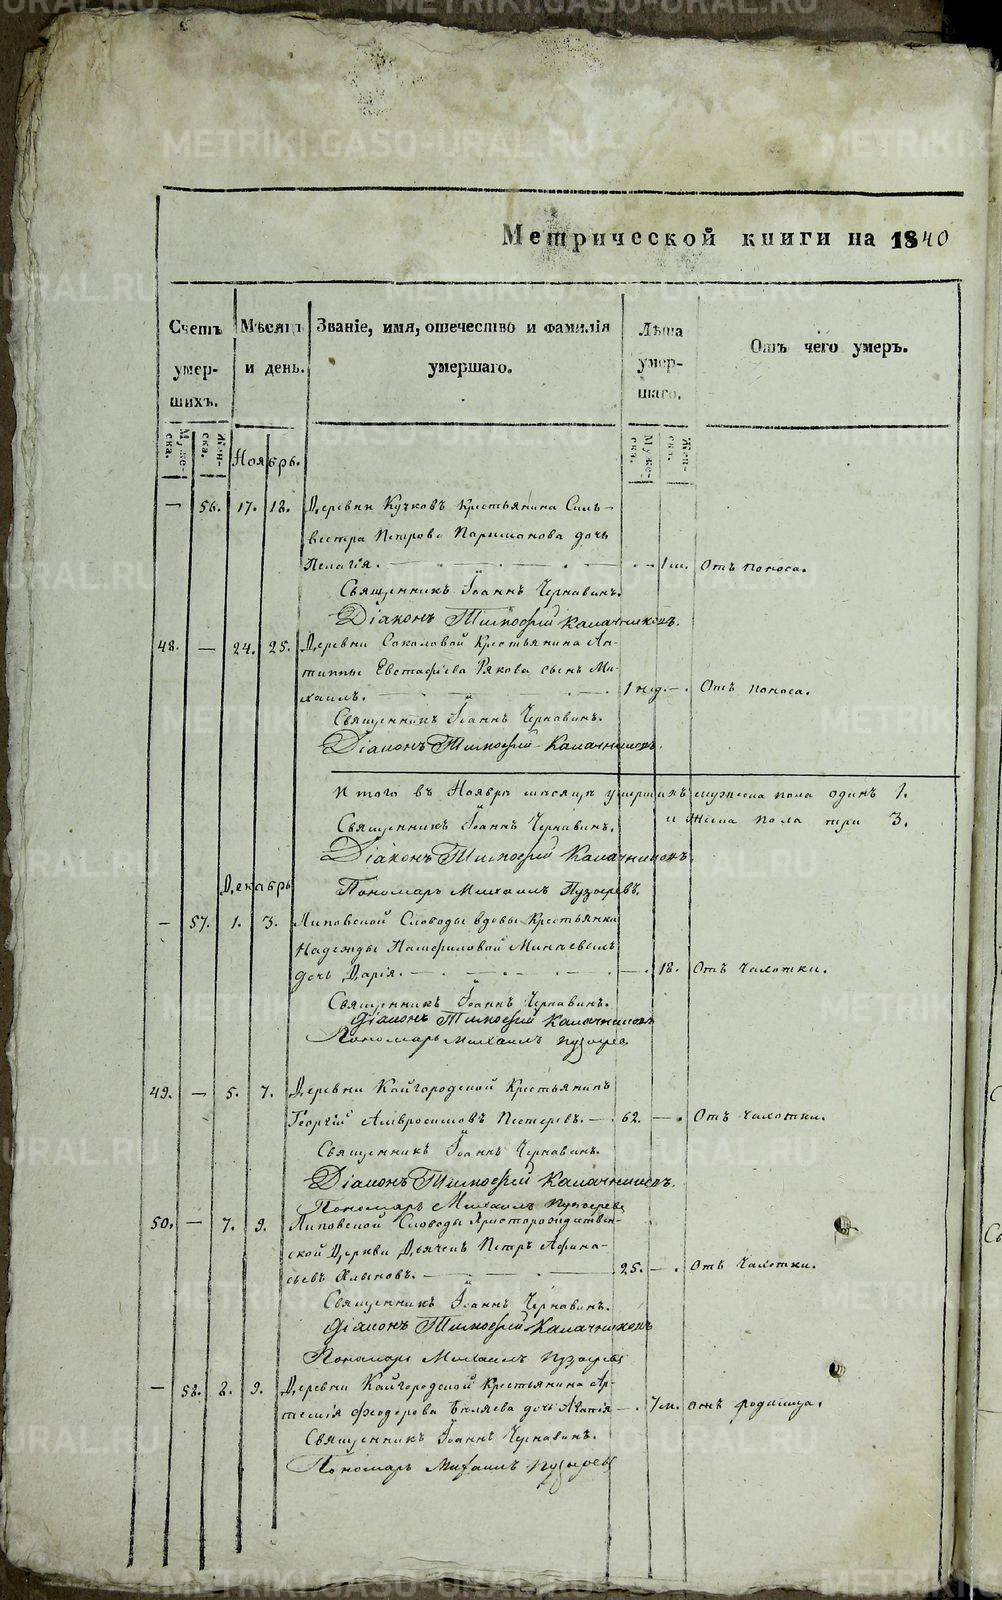 METRIKI.GASO-URAL.RU
Метрической книги на 1840
Счетъ умершихъ.
Мѣсяцъ и день.
Званіе, имя, отечество и фамилія умершаго.
Лѣта умершаго.
Отъ чего умеръ.
Мужеска.
Женска.
Мужеска.
Женска.
Ноябрь.
— 56. 17. 18. Деревни Кучковъ крестьянина Силь-
вестра Петрова Паршакова дочь
Пелагія. 1 м. Отъ поноса.
Священникъ Іоаннъ Чернавинъ.
Діаконъ Тимофей Калачниковъ.
48. — 24. 25. Деревни Соколовой крестьянина Ан-
типпы Евстафіева Рякова сынъ Ми-
хаилъ. 1 нед. — Отъ поноса.
Священникъ Іоаннъ Чернавинъ.
Діаконъ Тимофей Калачниковъ.
Итого въ Ноябрѣ мѣсяцѣ умершихъ мужеска пола одинъ 1.
и женска пола три 3.
Священникъ Іоаннъ Чернавинъ.
Діаконъ Тимофей Калачниковъ.
Пономарь Михаилъ Пузыревъ.
Декабрь
— 57. 1. 3. Липовской Слободы вдовы крестьянки
Надежды Памфиловой Минаевыхъ
дочь Дарія. — 18. Отъ чахотки.
Священникъ Іоаннъ Чернавинъ.
Діаконъ Тимофей Калачниковъ
Пономарь Михаилъ Пузырев
49. — 5. 7. Деревни Кайгородской крестьянинъ
Георгій Амвросимовъ Пестеревъ. — 62. — Отъ чахотки.
Священникъ Іоаннъ Чернавинъ.
Діаконъ Тимофей Калачниковъ.
Пономарь Михаилъ Пузыревъ
50. — 7. 9. Липовской Слободы Христорождествен-
ской Церкви Дьячекъ Петръ Афана-
сьевъ Хлыновъ. 25. — Отъ чахотки.
Священникъ Іоаннъ Чернавинъ.
Діаконъ Тимофей Калачниковъ
Пономарь Михаилъ Пузыревъ
— 58. 8. 9. Деревни Кайгородской крестьянина Ар-
темія Феодорова Бѣляева дочь Агапія — 7 м. отъ родимца.
Священникъ Іоаннъ Чернавинъ.
Пономарь Михаилъ Пузыревъ